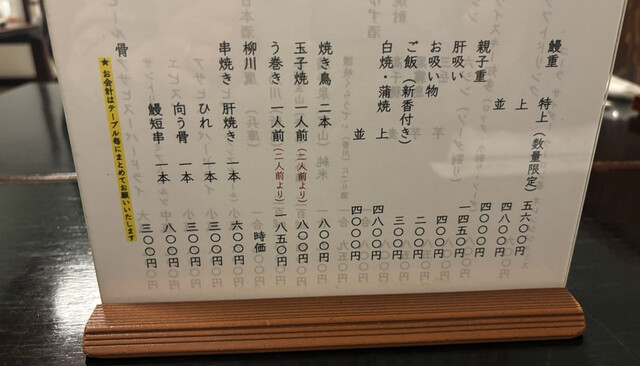 鰻重 特上（数量限定） 五六〇〇円
上 四八〇〇円
並 四〇〇〇円
親子重 一四五〇円
肝吸い
お吸い物 二〇〇円
ご飯（新香付き） 三〇〇円
白焼・蒲焼 上 四八〇〇円
並 四〇〇〇円
焼き鳥 二本 八〇〇円
玉子焼 一人前（二人前より） 八〇〇円
う巻き 一人前（二人前より） 一八五〇円
柳川 時価
串焼き 肝焼き 一本 六〇〇円
ひれ 一本 三〇〇円
向う骨 一本 三〇〇円
鰻短串 一本 八〇〇円
骨 三〇〇円
★お会計はテーブル毎にまとめてお願いいたします